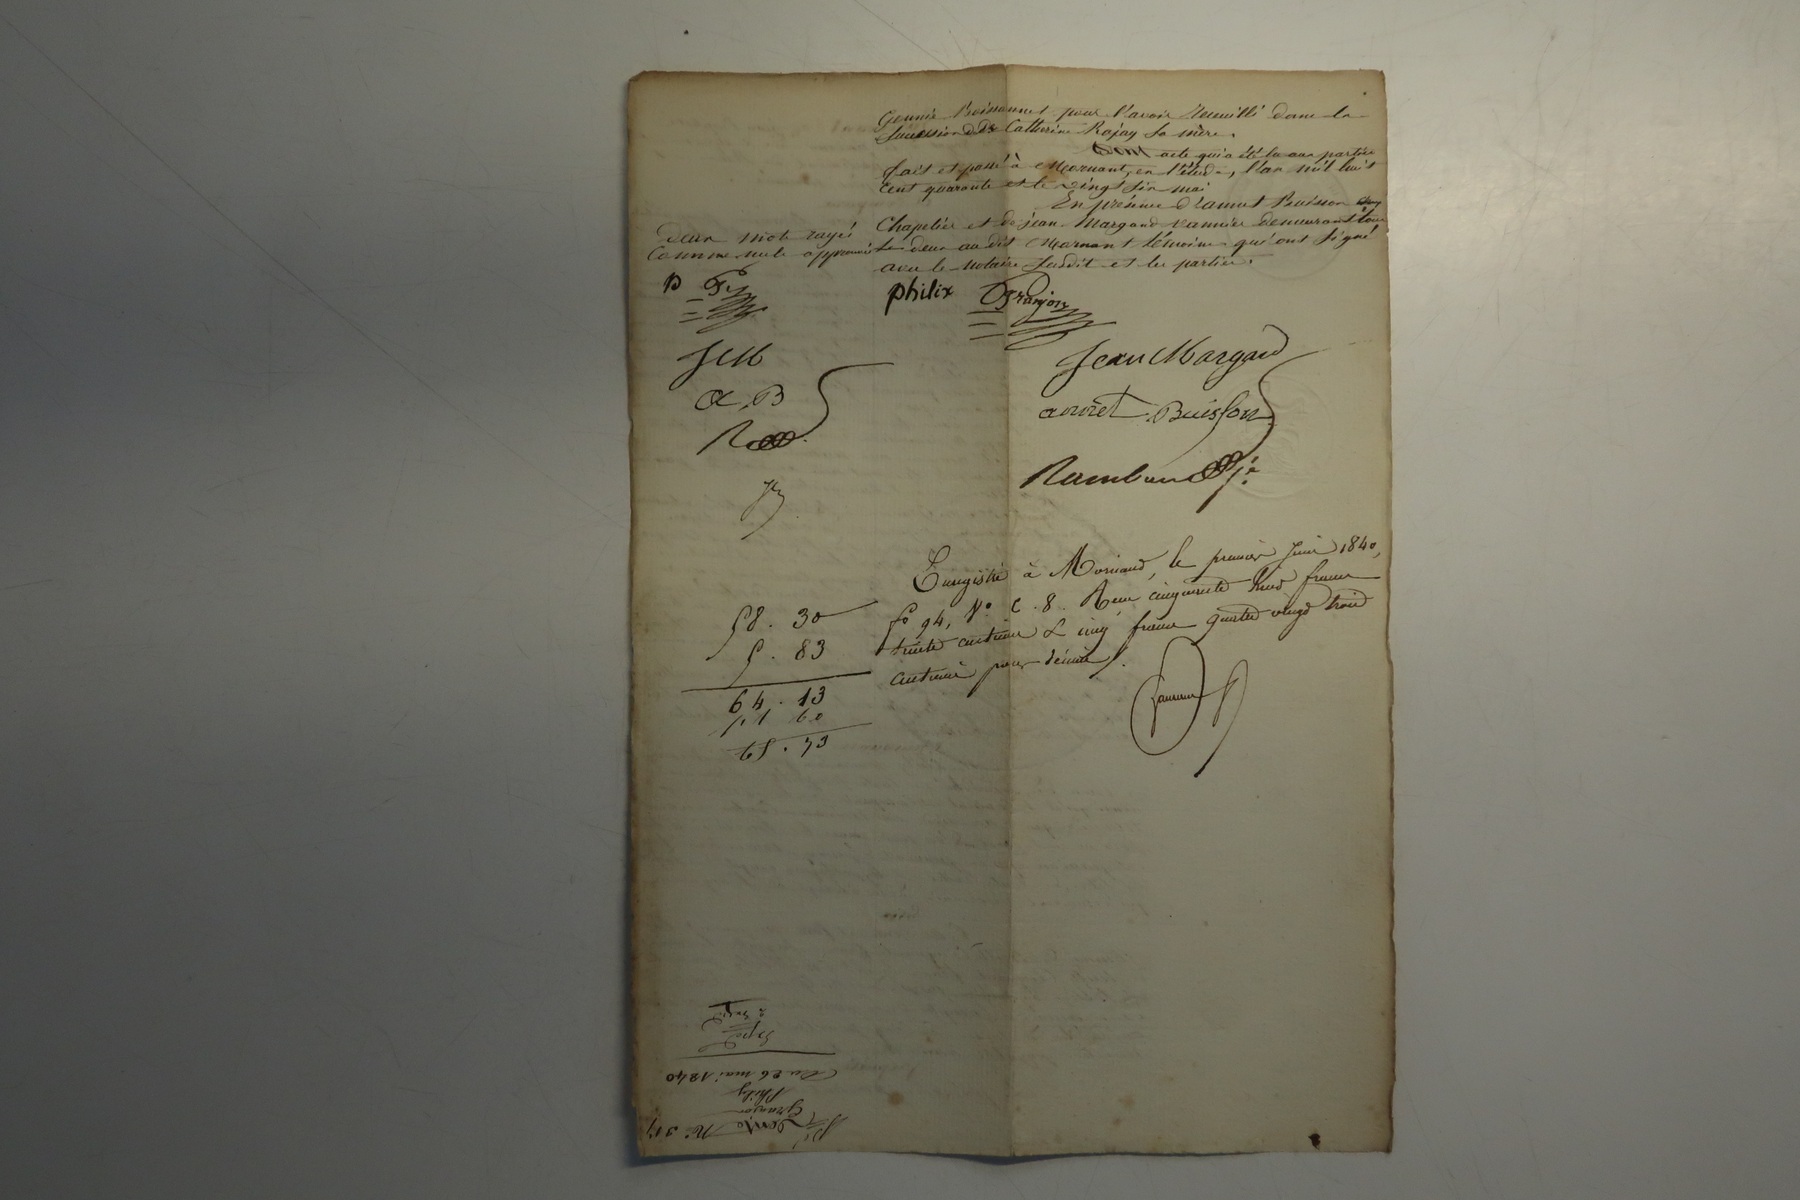 pour l'avoir recueilli dans la
succession de De Catherine Rajay sa mère.
Dont acte qui a été lu aux parties
fait et passé à Mornant, en l'étude, l'an mil huit
cent quarante et le vingt six mai
En présence d'annet Buisson
Chapelier et de jean Margand vannier demeurant tous
les deux au dit Mornant témoins qui ont signé
avec le notaire susdit et les parties.
deux mots rayés
comme nuls approuvés
philix Granjon
P G
Jean Margand
J M
annet Buisson
a. B
Rambaud
Enregistré à Mornand, le premier juin 1840,
fo 94, Vo c. 8. Reçu cinquante huit francs
trente centimes & cinq francs quatre vingt trois
centimes pour décime.
58. 30
5. 83
64. 13
1. 60
65. 73
No 317
Vente
Granjon
Philix
Du 26 mai 1840
Expé